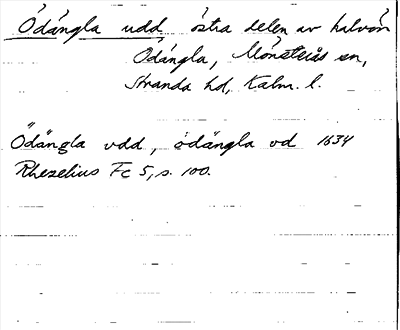 Ödängla udd östra delen av halvön
Ödängla, Mönsterås sn,
Stranda hd, Kalm. l.
Ödängla vdd, ödängla vd 1634
Rhezelius Fc 5, s. 100.